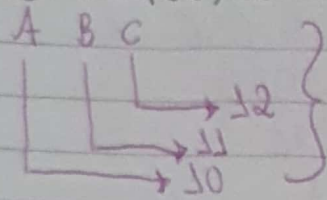 A B C
12
11
10